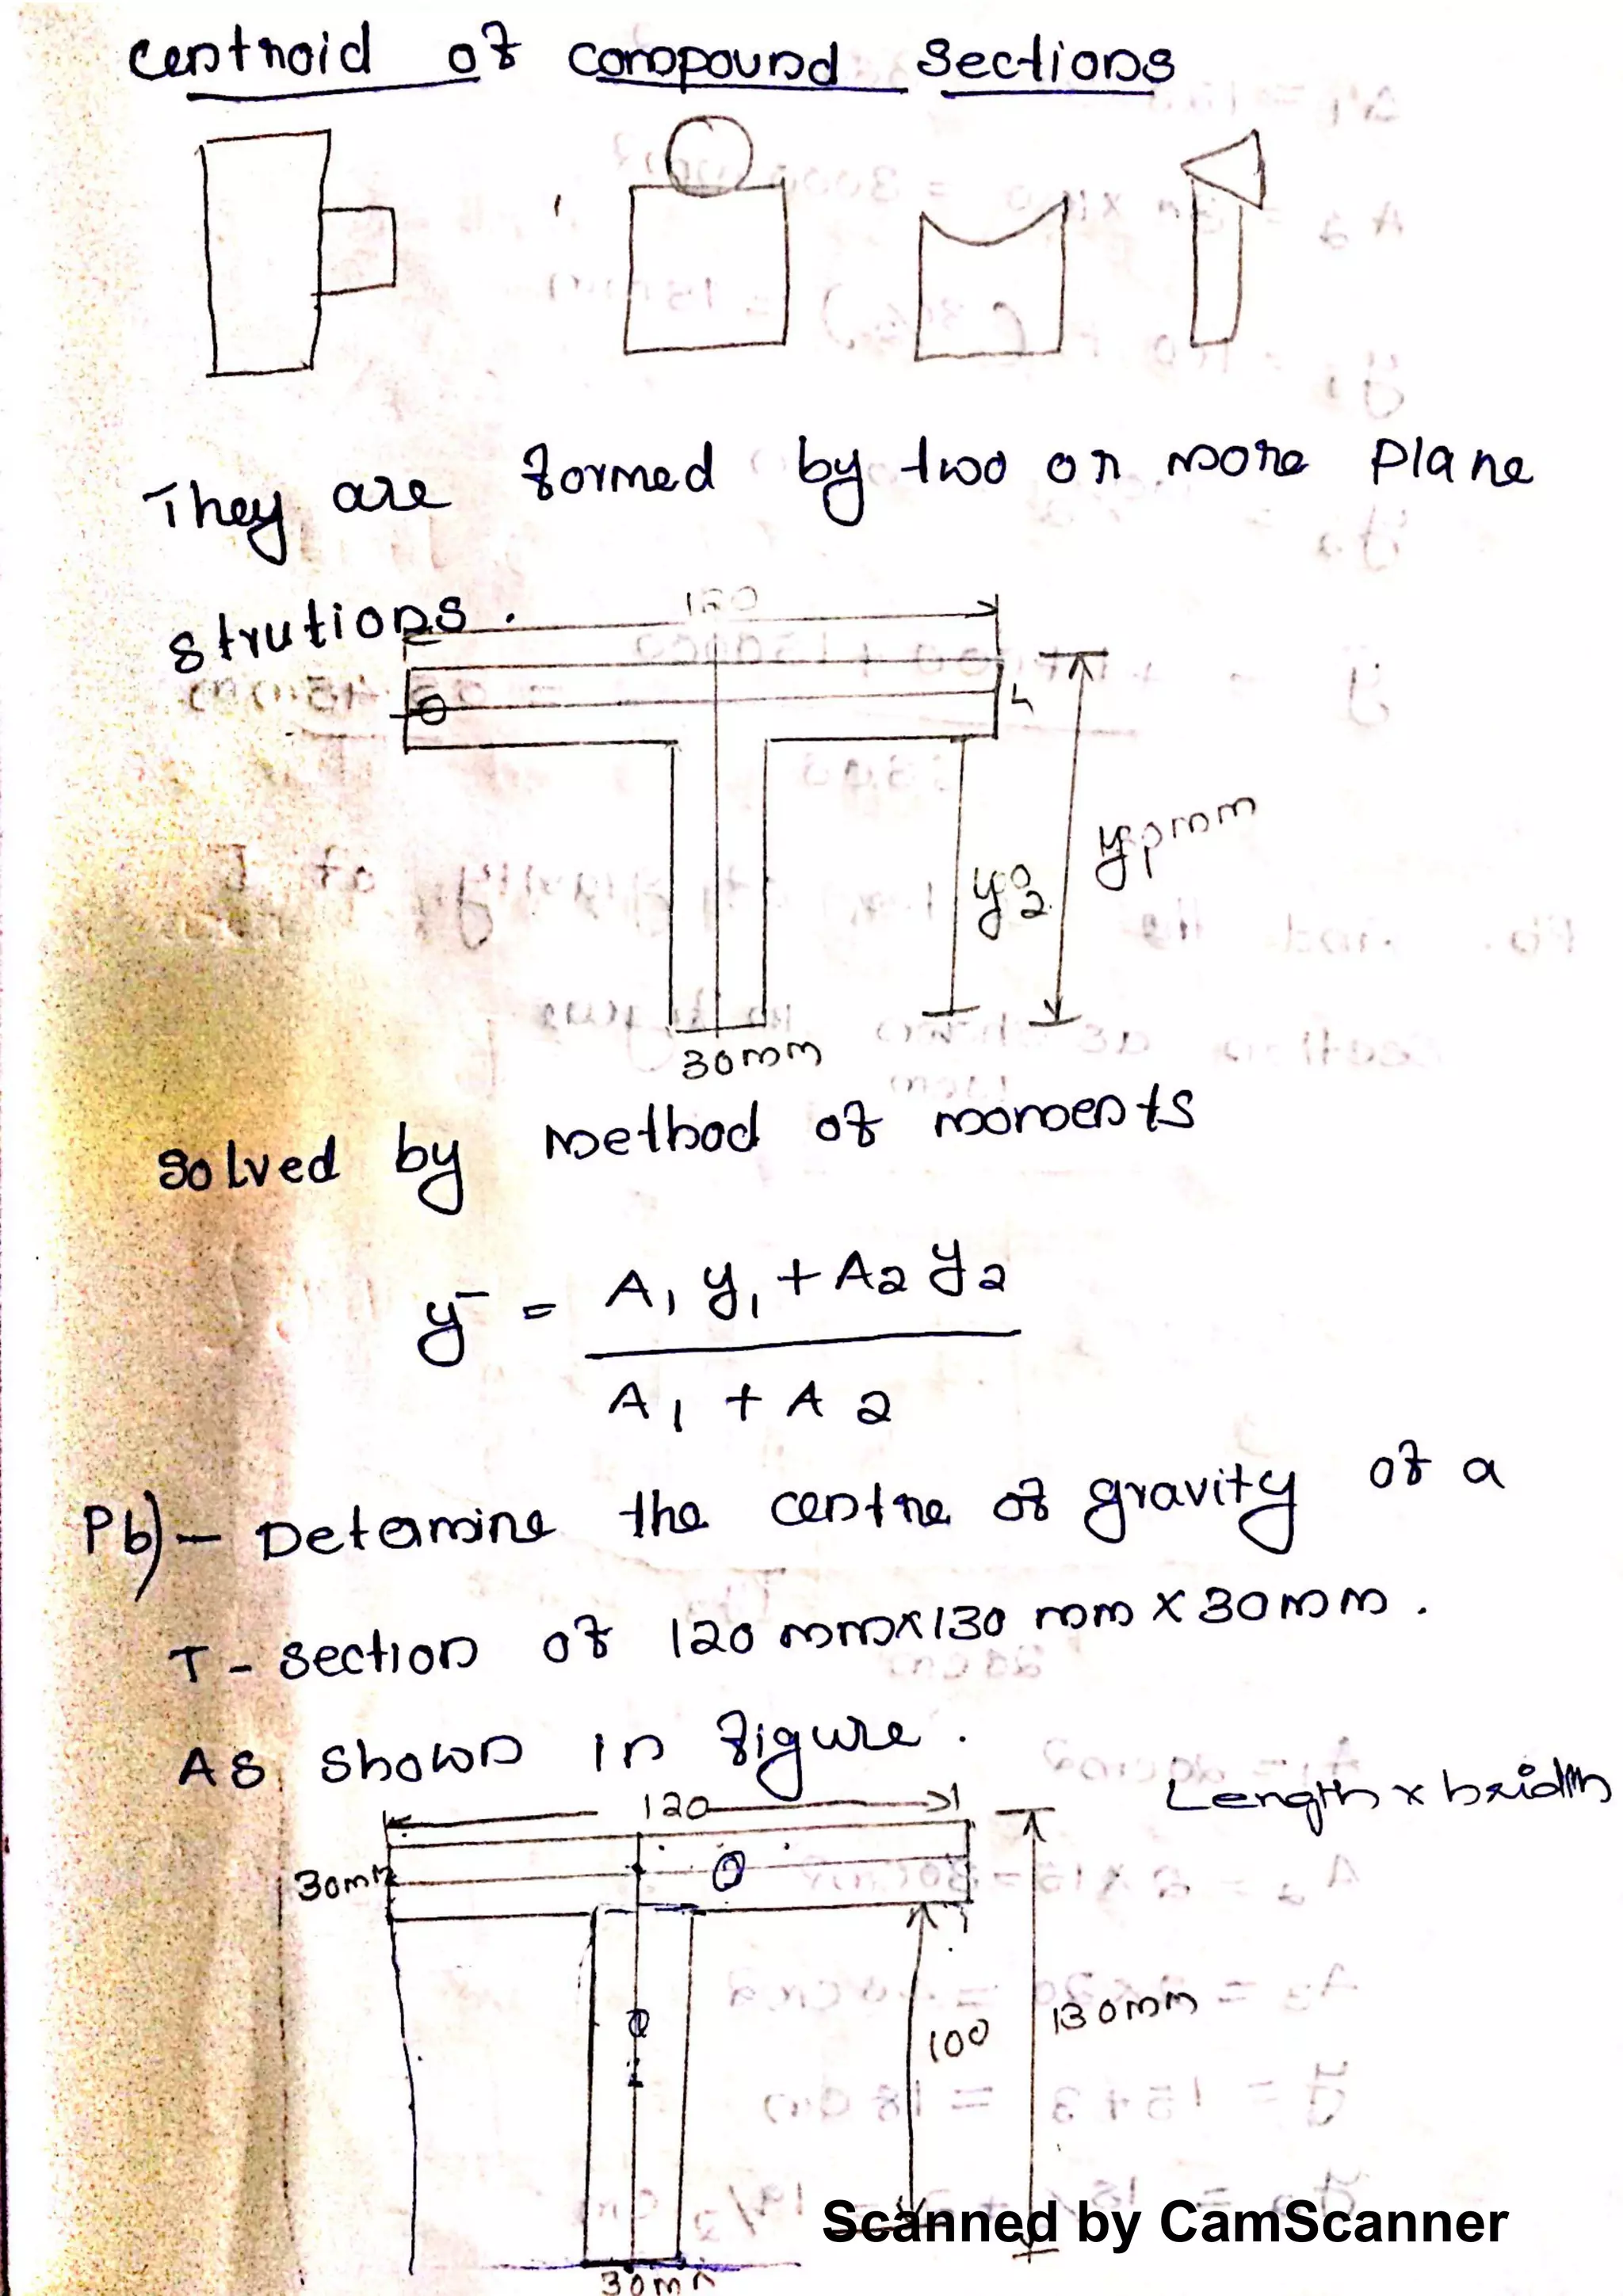 Centroid of compound sections
They are formed by two or more plane
strutions.
120
h
y1 mm
y2
30mm
solved by method of moments
y¯ = A1 y1 + A2 y2
A1 + A2
Pb) - Determine the centre of gravity of a
T - section of 120 mm x 130 mm x 30mm.
As shown in figure.
Length x breidth
120
30mm
100
130mm
30mm
Scanned by CamScanner